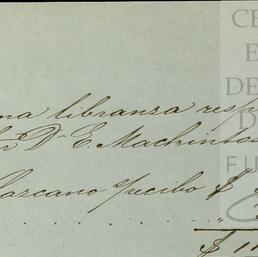 na libranza resp
or Dn E. Mackintos
Lazcano yrecibo $
"
$ 11
CE
E
DE
D
FU